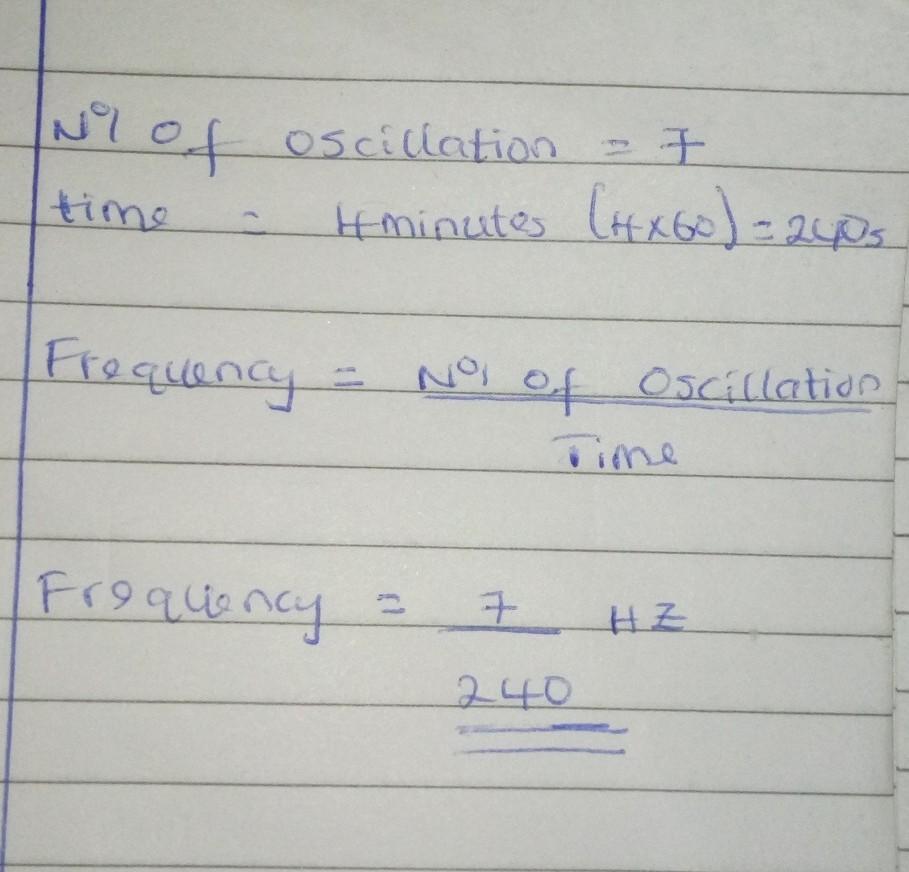 No of oscillation = 7
time = 4minutes (4x60) = 240s
Frequency = No of Oscillation
Time
Frequency = 7 HZ
240